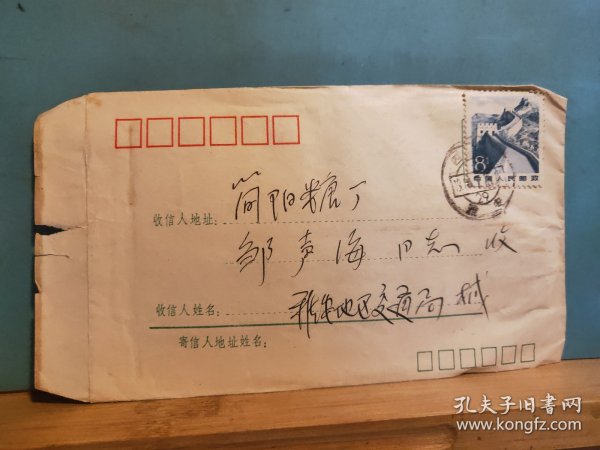 8
中国人民邮政
收信人地址: 简阳糖厂
邹声海 同志 收
收信人姓名: 雅安地区交通局 械
寄信人地址姓名:
孔夫子旧书网
www.kongfz.com